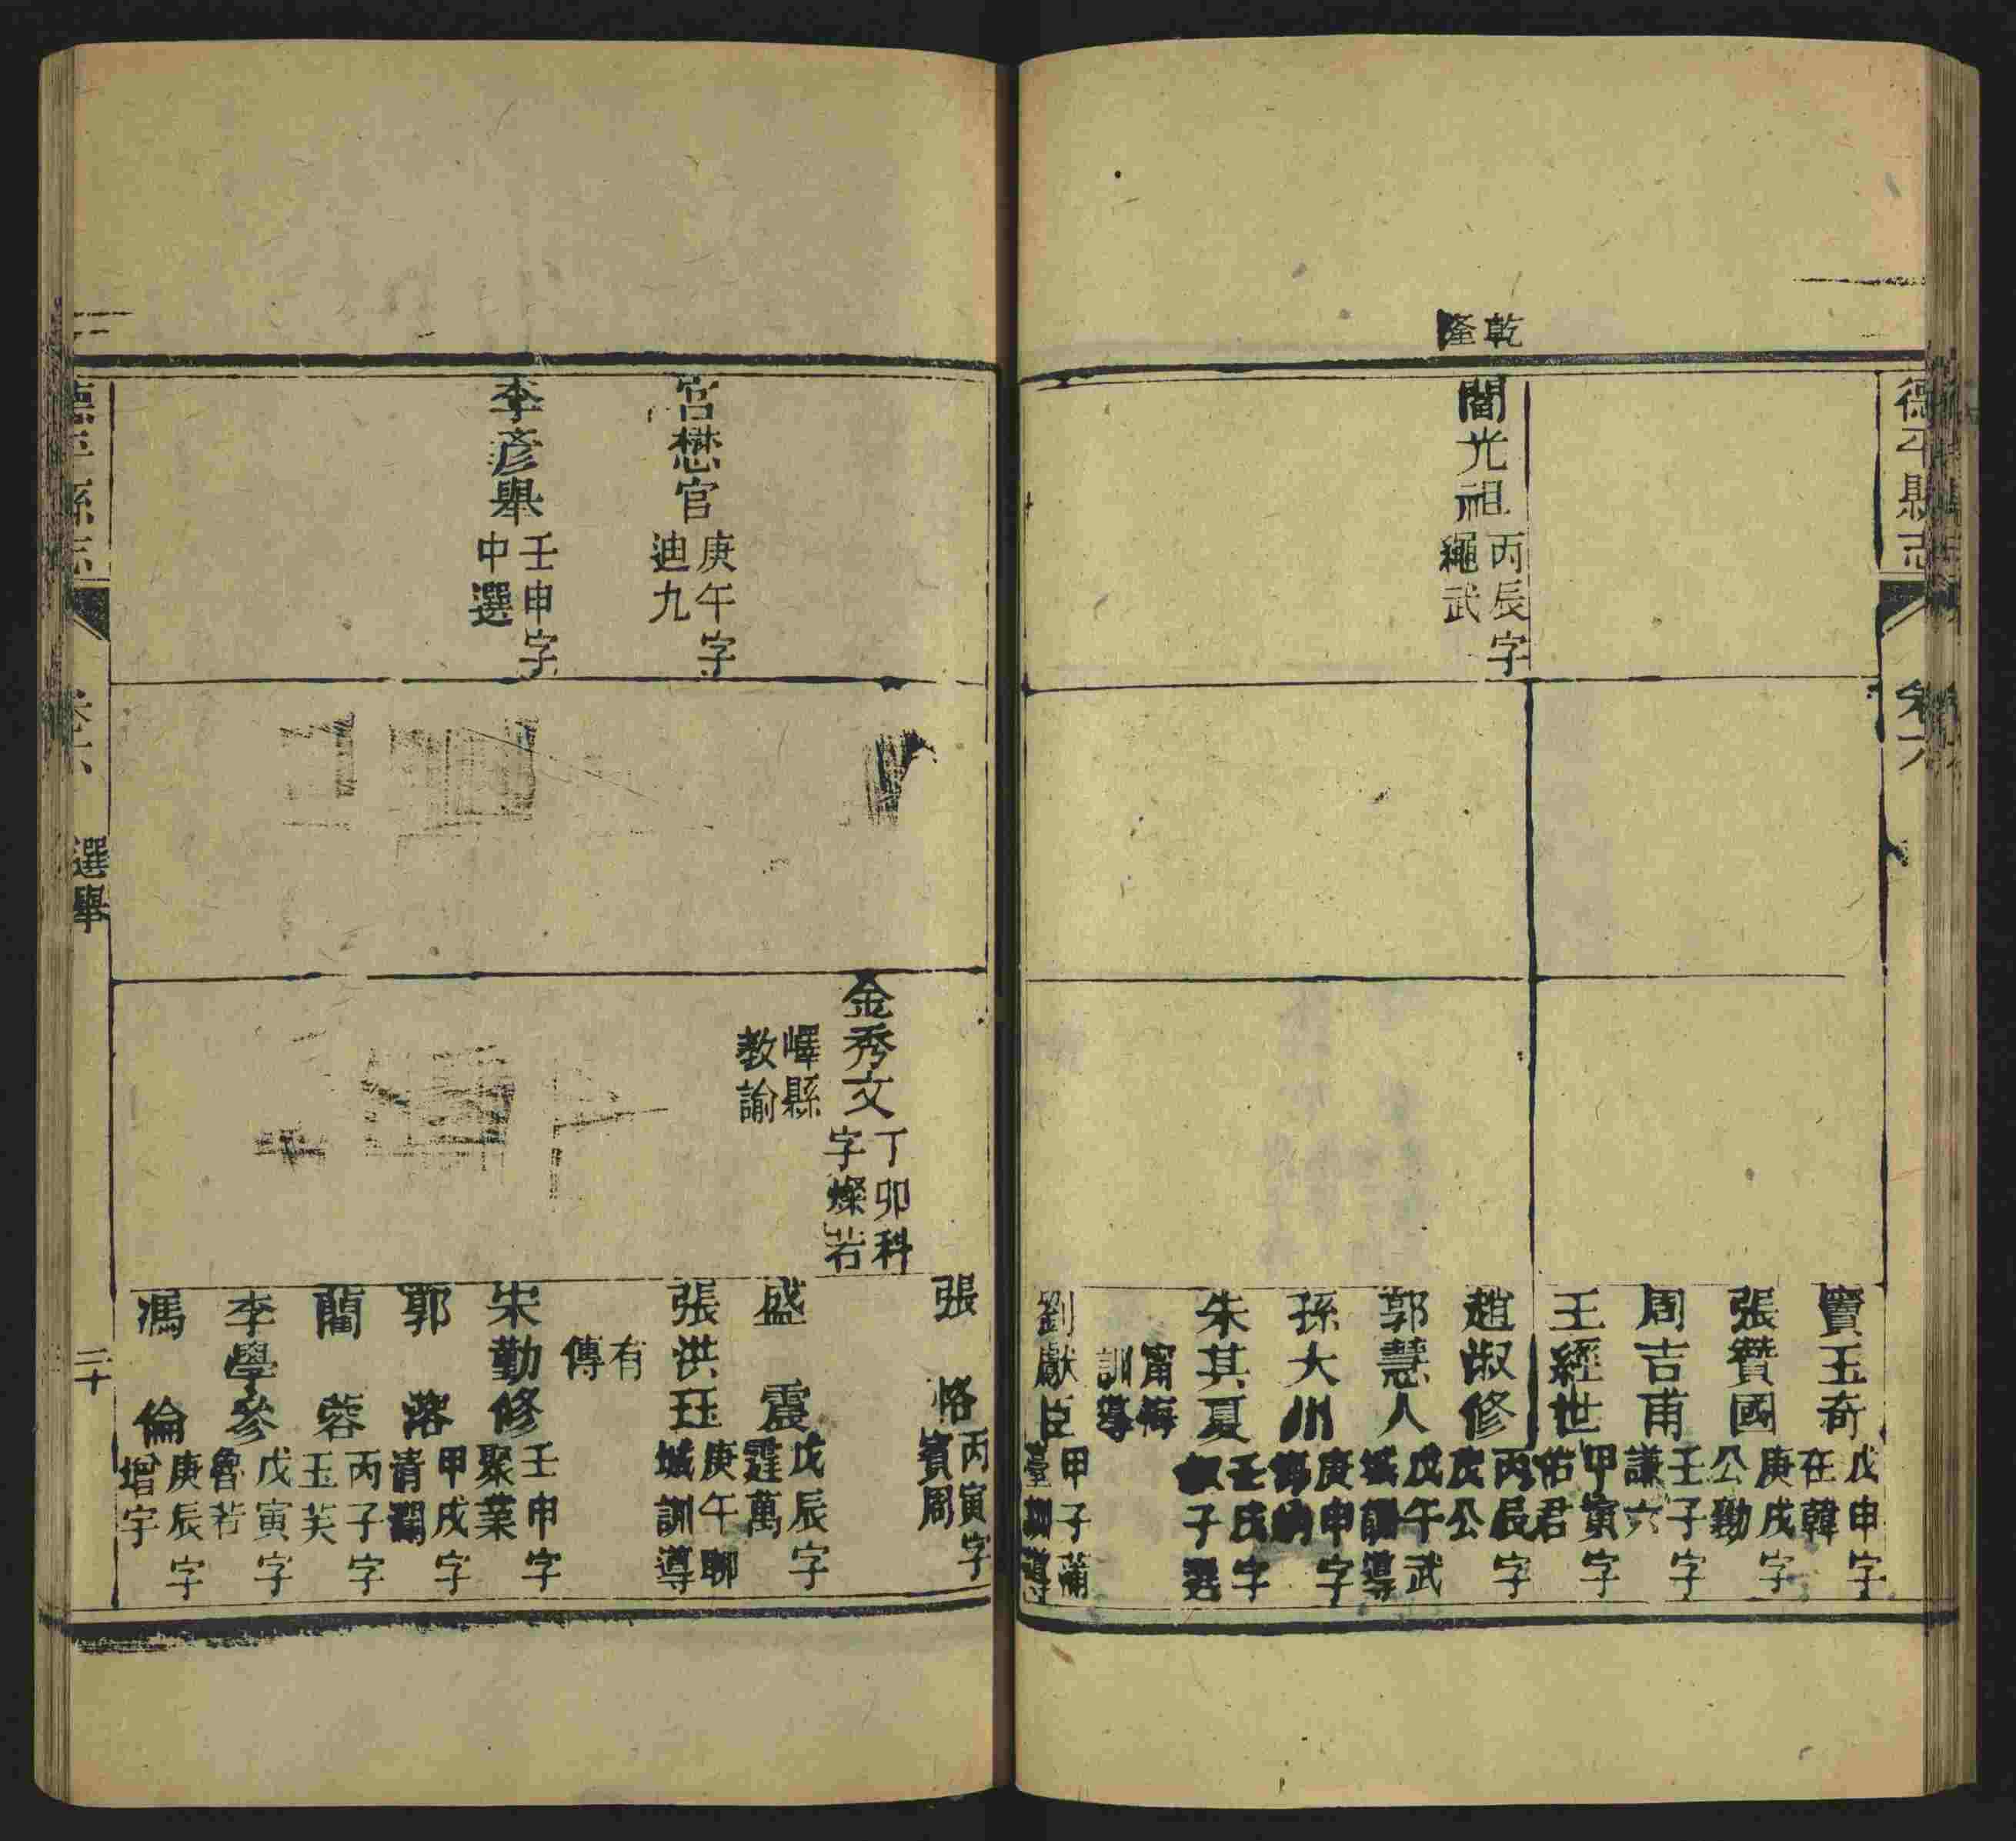 德平縣志
卷六
乾
隆
閻光祖
丙辰字
繩武
竇玉奇
戊申字
在韓
張贊國
庚戌字
公勷
周吉甫
壬子字
謙六
王經世
甲寅字
佑君
趙淑修
丙辰字
茂公
郭慧人
戊午武
城訓導
孫大川
庚申字
朱其夏
壬戌字
子選
甯海
訓導
劉獻臣
甲子蒲
臺訓導
宫懋官
庚午字
迪九
李彥舉
壬申字
中選
金秀文
丁卯科
字燦若
嶧縣
教諭
張恪
丙寅字
賓周
盛震
戊辰字
霆萬
張洪珏
庚午聊
城訓導
有
傳
宋勤修
壬申字
聚業
郭濚
甲戌字
清瀾
藺蓉
丙子字
玉芙
李學參
戊寅字
魯若
馮倫
庚辰字
增宇
德平縣志
卷六
選舉
二十